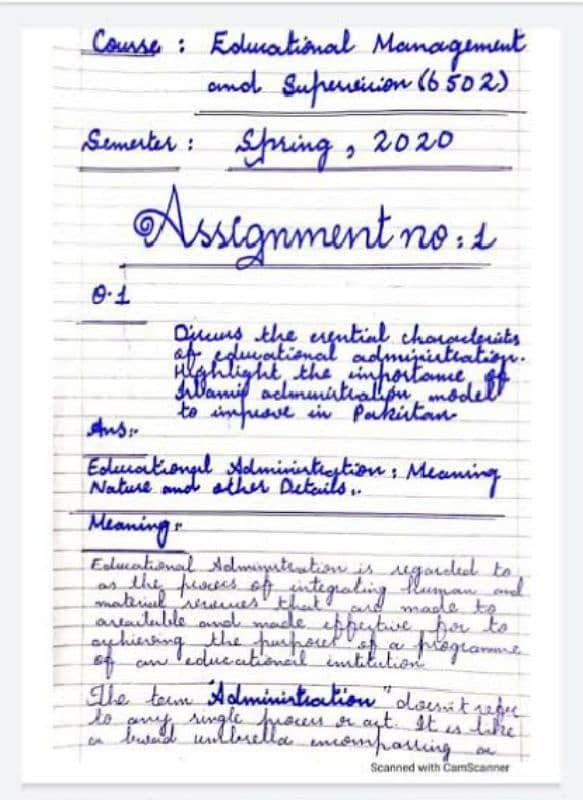 Course : Educational Management
and Supervision (6502)
Semester : Spring, 2020
Assignment no: 1
Q.1
Discuss the essential characteristics
of educational administration.
Highlight the importance of
Islamic administration model
to improve in Pakistan
Ans:-
Educational Administration : Meaning
Nature and other Details :.
Meaning:-
Educational Administration is regarded to
as the process of integrating human and
material resources that are made to
available and made effective for to
achieving the purposes of a programme
of an educational institution
The term "Administration" doesn't refer
to any single process or act. It is like
a broad umbrella encompassing a
Scanned with CamScanner